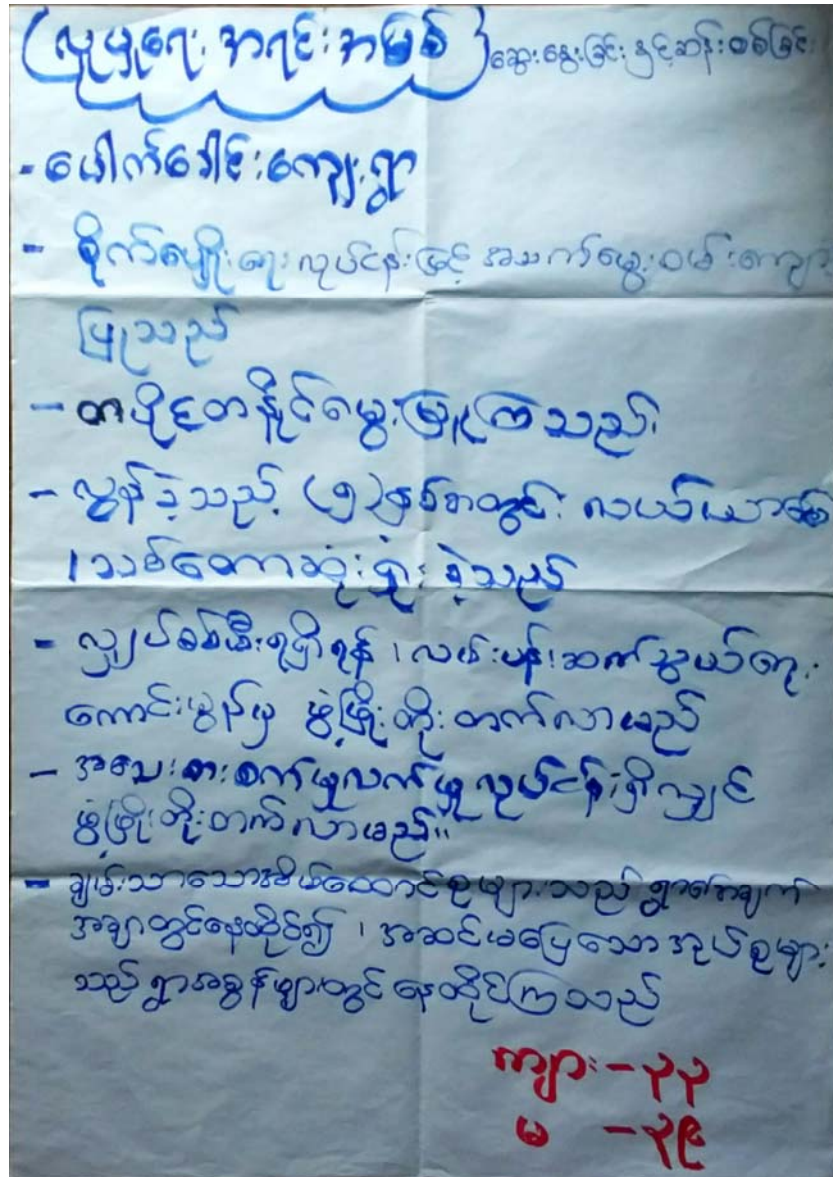 (လူမှုရေး အရင်းအမြစ်) ဆွေးနွေးခြင်းနှင့်ဆန်းစစ်ခြင်း
- ပေါက်ခေါင်းကျေးရွာ
- စိုက်ပျိုးရေးလုပ်ငန်းဖြင့် အသက်မွေးဝမ်းကျောင်း
ပြုသည်
- တပိုင်တနိုင်မွေးမြူကြသည်၊
- လွန်ခဲ့သည့် (၅)နှစ်စာတွင်း လယ်ယာမြေ
၊သစ်တောဆုံးရှုံးခဲ့သည်
- လျှပ်စစ်မီးရရှိရန်၊လမ်းပန်းဆက်သွယ်ရေး
ကောင်းမွန်မှ ဖွံ့ဖြိုးတိုးတက်လာမည်
- အသေးစားစက်မှုလက်မှုလုပ်ငန်းရှိလျှင်
ဖွံ့ဖြိုးတိုးတက်လာမည်။
- ချမ်းသာသောအိမ်ထောင်စုများသည် ရွာအချက်
အချာတွင်နေထိုင်၍ ၊ အဆင်မပြေသောအုပ်စုများ
သည် ရွာအစွန်များတွင် နေထိုင်ကြသည်
ကျား - ၃၃
မ - ၃၉